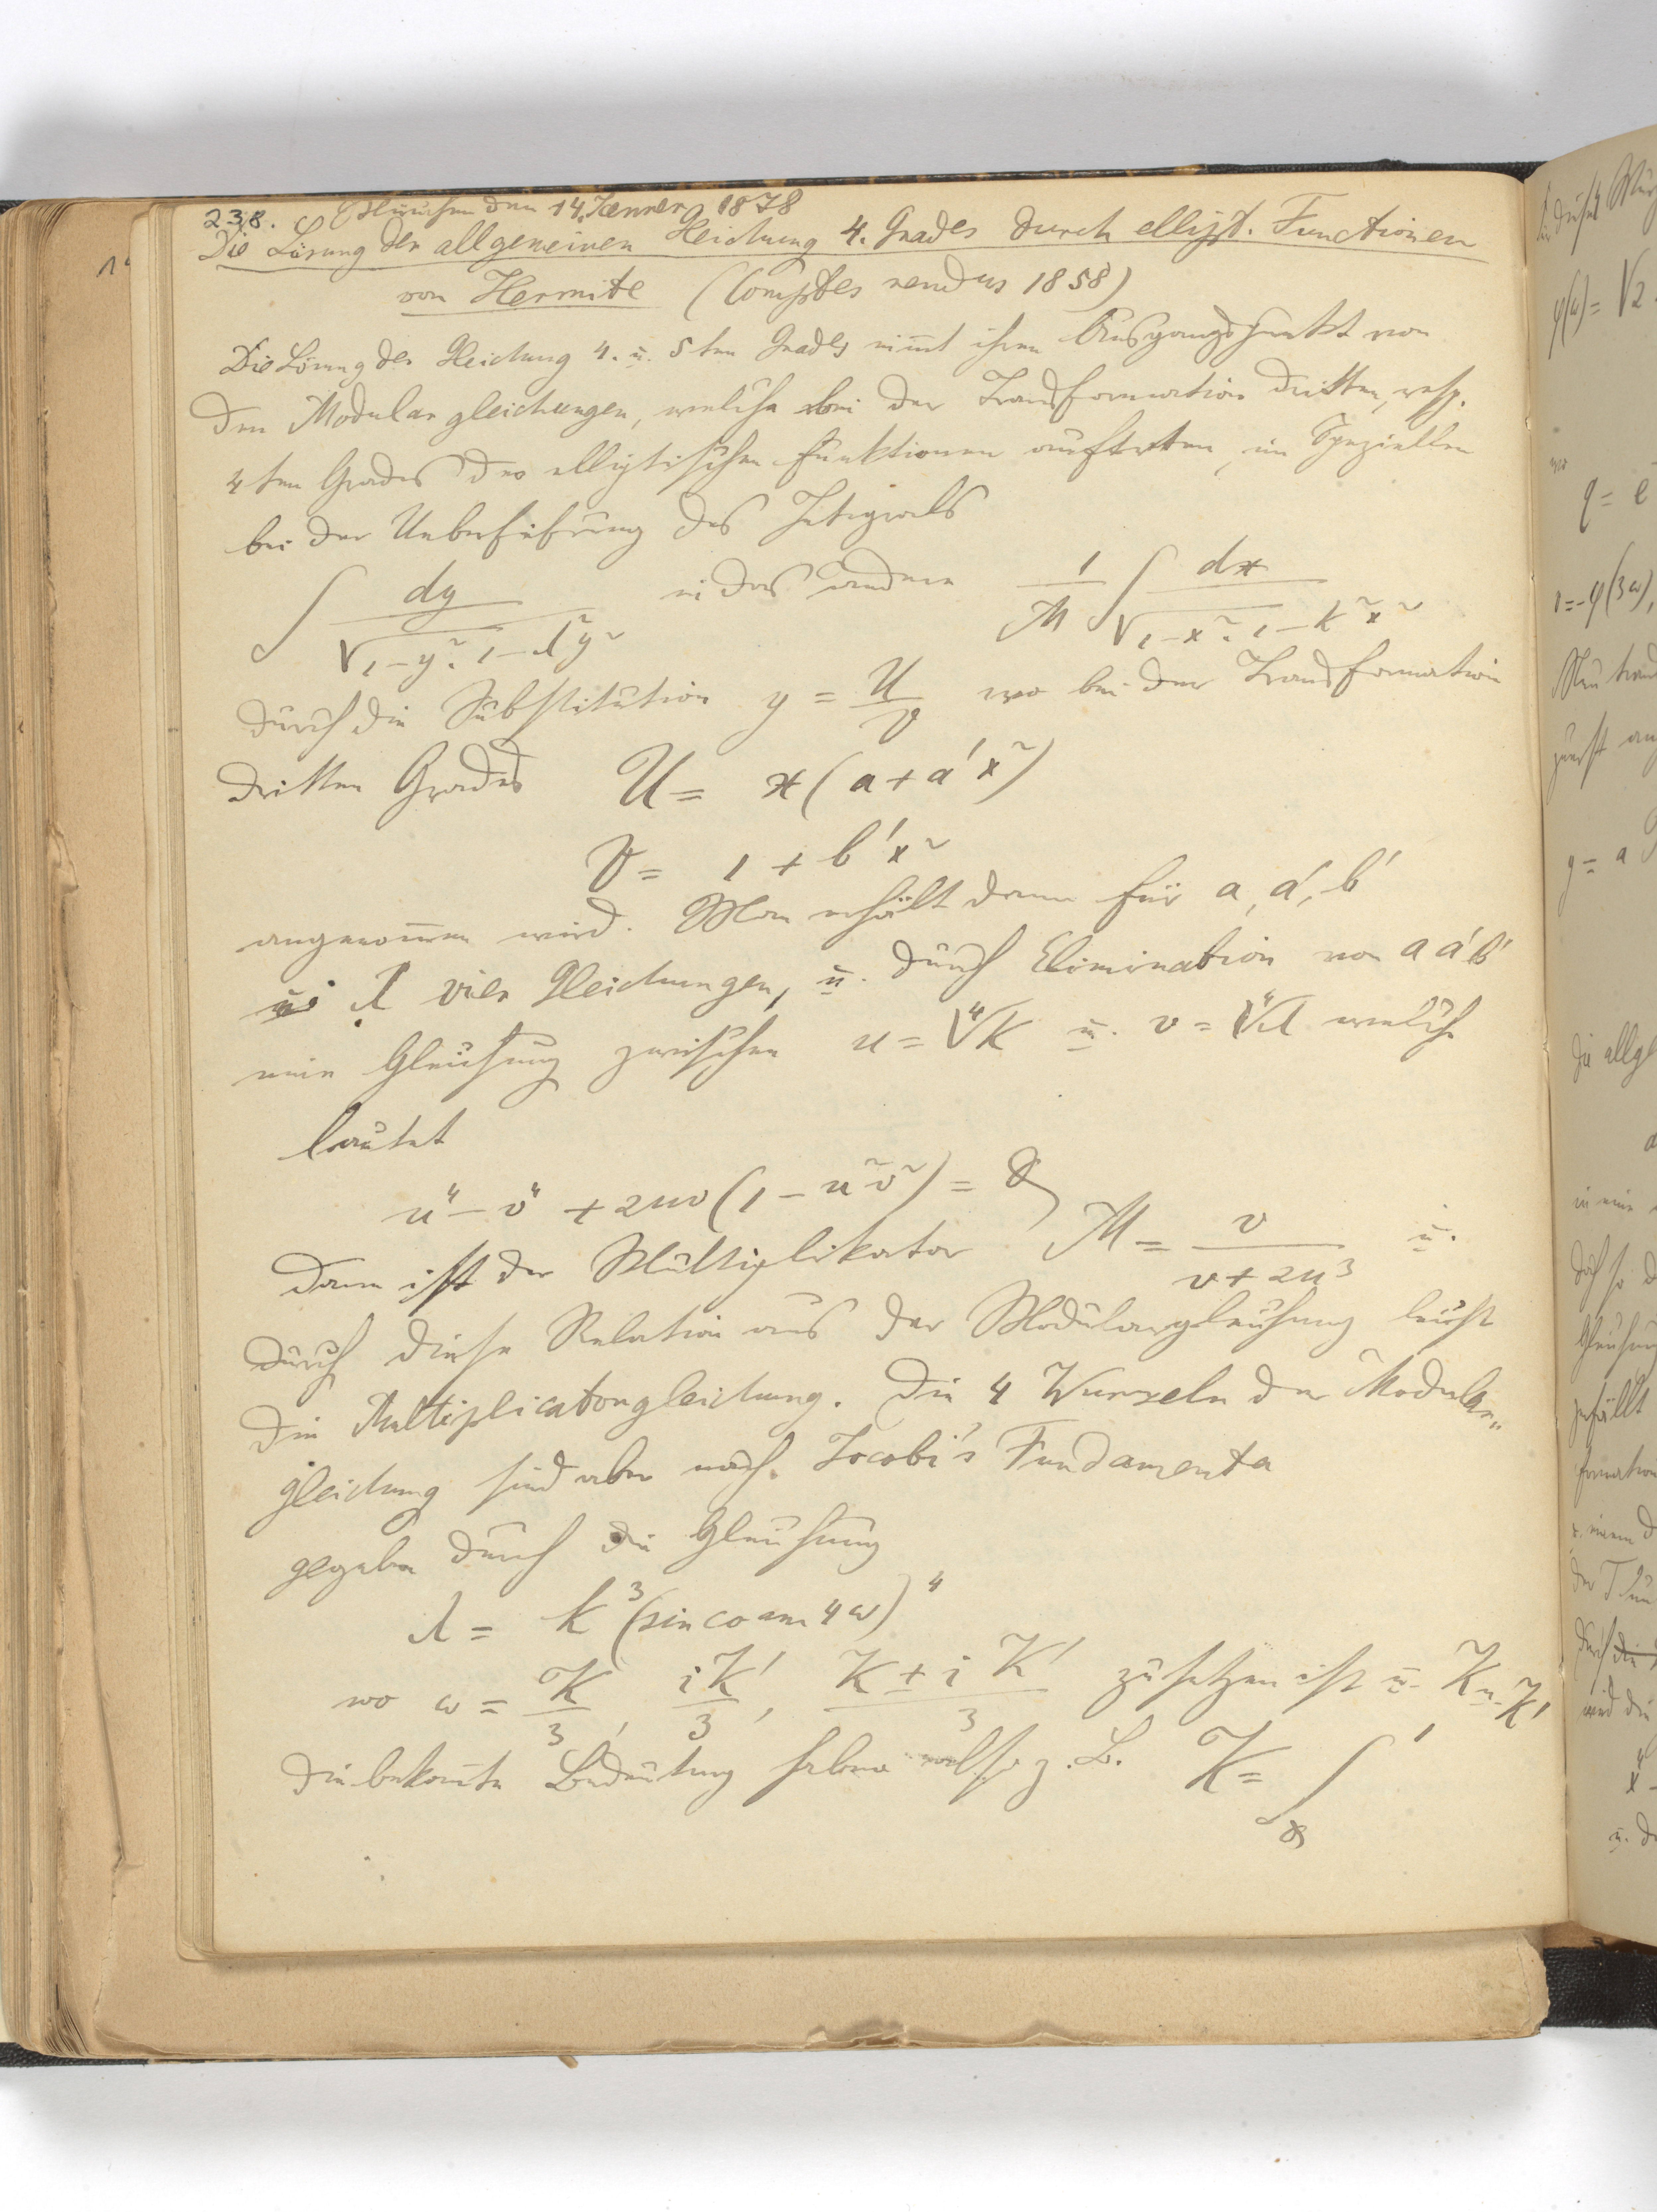 238. München den 14. Jenner 1878
Die Lösung der allgemeinen Gleichung 4. Grades durch ellipt. Functionen
von Hermite (Comptes rendus 1858)
Die Lösung der Gleichung 4. u. 5ten Grades nimmt ihren Ausgangspunkt von
den Modulargleichungen, welche bei der Transformation dritten, resp.
4ten Grades der elliptischen Funktionen auftreten, im Speziellen
bei der Ueberführung des Integrals
∫ dy / √1-y². 1-λ²y² in das andere 1/M ∫ dx / √1-x². 1-k²x²
durch die Substitution y = U/V wo bei der Transformation
dritten Grades U = x(a+a'x²)
V = 1 + b'x²
angenommen wird. Man erhält dann für a, a', b'
u. λ vier Gleichungen, u. durch Elimination von a a' b'
eine Gleichung zwischen u = ∜k u. v = ∜λ welche
lautet
u⁴ - v⁴ + 2uv(1-u²v²) = 0
Dann ist der Multiplikator M = v / v+2u³ u.
durch diese Relation aus der Modulargleichung leicht
die Multiplicatorgleichung. Die 4 Wurzeln der Modular„
gleichung sind aber nach Jacobi's Fundamenta
gegeben durch die Gleichung
λ = k³(sin co am 4ω)⁴
wo ω = K/3, iK'/3, K±iK'/3 zu setzen ist u. K u. K'
die bekannte Bedeutung haben also z. B. K = ∫₀¹